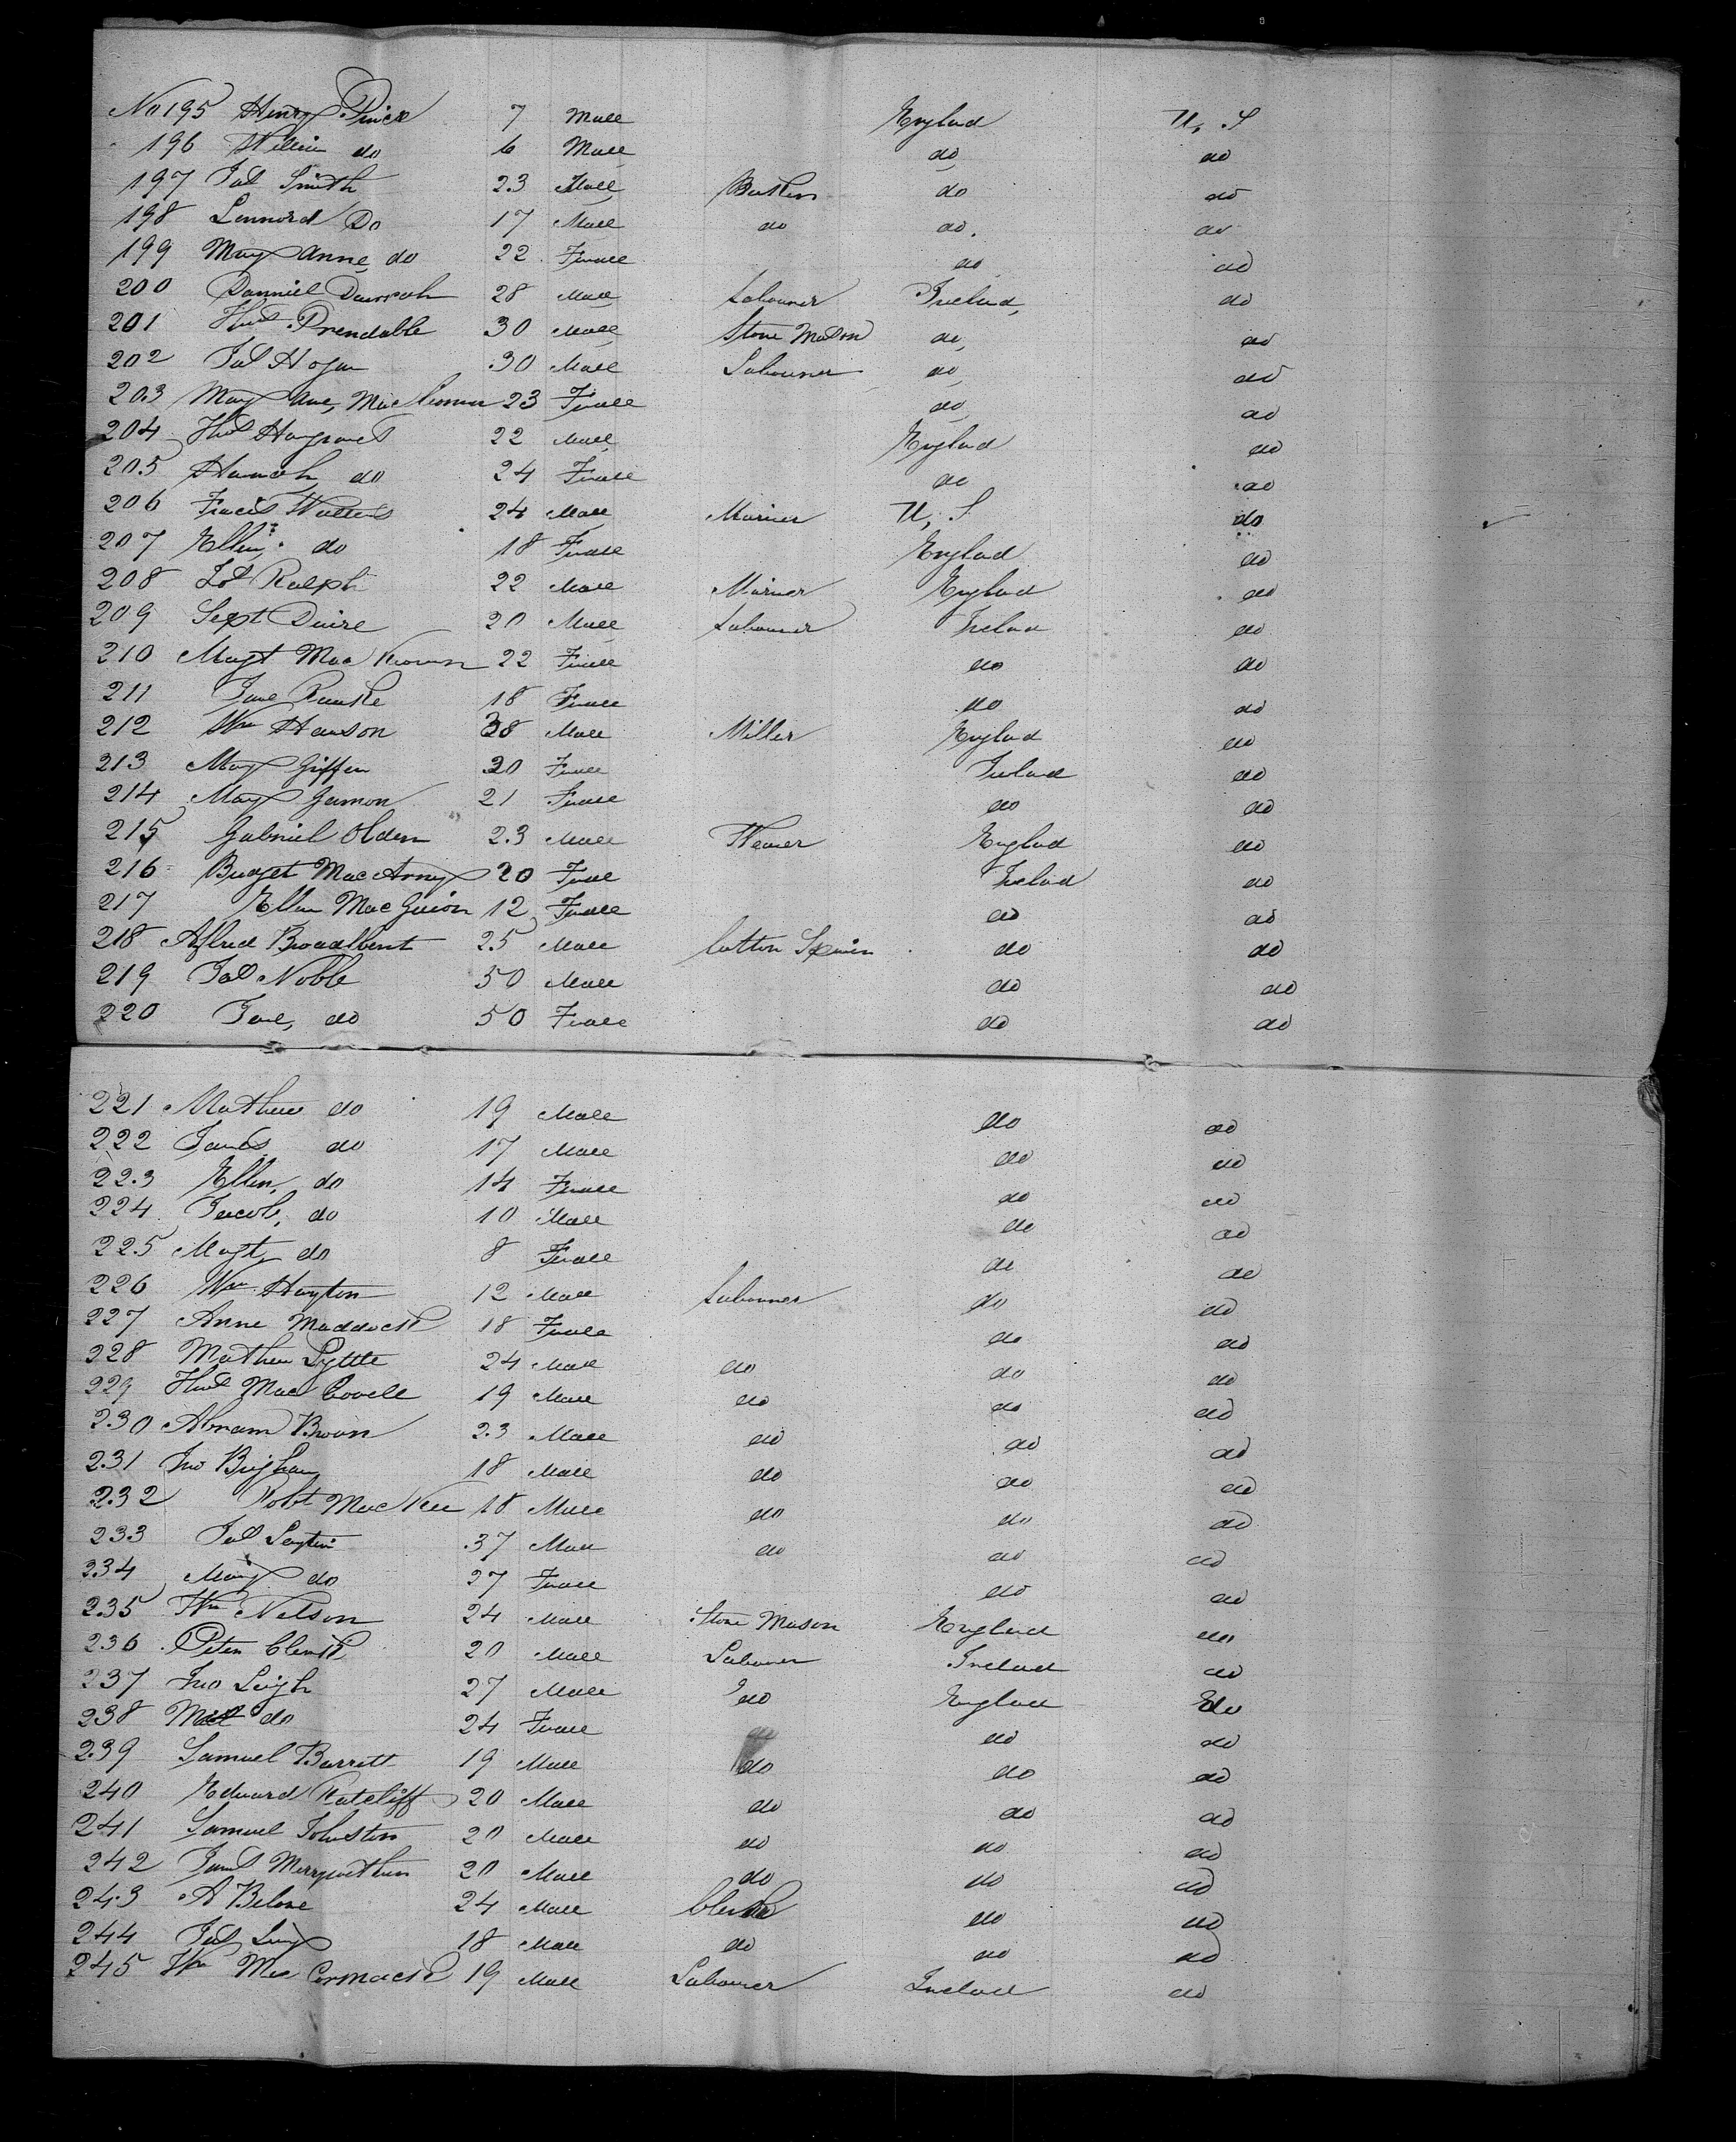 No 195 Henry Price 7 Male England U. S
196 William do 6 Male do do
197 Jas Smith 23 Male do do
198 Lennord Do 17 Male do do. do
199 Mary Anne do 22 Female do do
200 Danniel 28 Male Labourer Ireland, do
201 Thos Prendable 30 Male Stone Mason do, do
202 Jas Hogan 30 Male Labourer do do
203 Mary Ane, Mac 23 Female do do
204 Thos Hargraves 22 Male England do
205 Hannah do 24 Female do do
206 Fracis Walters 24 Male Mariner U, S do
207 Ellen do 18 Female England do
208 Jos Ralph 22 Male Mariner England do
209 Sept Daire 20 Male Labourer Ireland do
210 Magt Mac Keown 22 Female do do
211 Jane 18 Female do do
212 Wm Hanson 38 Male Miller England do
213 Mary Giffen 20 Female Ireland do
214 Mary Gamon 21 Female do do
215 Gabriel Olden 23 Male Weaver England do
216 Budget Mac Arny 20 Female Ireland do
217 Ellen Mac Guion 12 Female do do
218 Alfred Broadbent 25 Male Cotton Spinner do do
219 Jas Noble 50 Male do do
220 Jane, do 50 Female do do
221 Mathew do 19 Male do do
222 James do 17 Male do do
223 Ellen, do 14 Female do do
224 Jacob, do 10 Male do do
225 Magt, do 8 Female do do
226 Wm Hayton 12 Male Labourer do do
227 Anne Maddock 18 Female do do
228 Mathew Lyttle 24 Male do do do
229 Thos Mac Covell 19 Male do do do
230 Abram Brown 23 Male do do do
231 Jno Brigham 18 Male do do do
232 Robt Mac Kee 18 Male do do do
233 Jas 37 Male do do do
234 Mary do 27 Female do do
235 Wm Nelson 24 Male Stone Mason England do
236 Peter Clark 20 Male Labourer Ireland do
237 Jno Leigh 27 Male do England do
238 do 24 Female do do do
239 Samuel Barrett 19 Male do do do
240 Edward Ratcliff 20 Male do do do
241 Samuel Johnston 20 Male do do do
242 James Merryweather 20 Male do do do
243 A 24 Male Clerk do do
244 Jas 18 Male do do do
245 Wm Mac Cormack 19 Male Labourer Ireland do